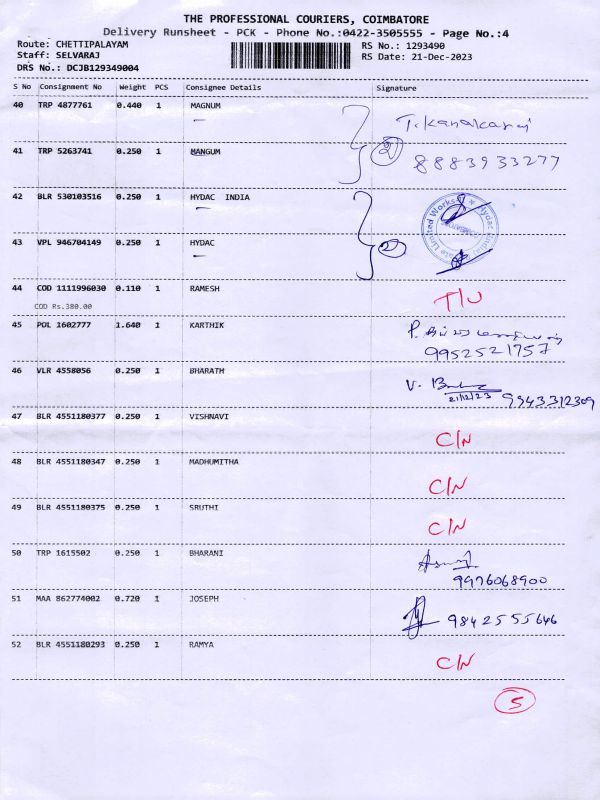 THE PROFESSIONAL COURIERS, COIMBATORE
Delivery Runsheet - PCK - Phone No.:0422-3505555 - Page No.:4
Route: CHETTIPALAYAM RS No.: 1293490
Staff: SELVARAJ RS Date: 21-Dec-2023
DRS No.: DCJB129349004
S No Consignment No Weight PCS Consignee Details Signature
40 TRP 4877761 0.440 1 MAGNUM T.Kanakaraj
41 TRP 5263741 0.250 1 MANGUM 2 8883933277
42 BLR 530103516 0.250 1 HYDAC INDIA
43 VPL 946704149 0.250 1 HYDAC 2
44 COD 1111996030 0.110 1 RAMESH T/U
COD Rs.380.00
45 POL 1602777 1.640 1 KARTHIK P.
9952521757
46 VLR 4558056 0.250 1 BHARATH V.
21/12/23 9943312309
47 BLR 4551180377 0.250 1 VISHNAVI C/N
48 BLR 4551180347 0.250 1 MADHUMITHA C/N
49 BLR 4551180375 0.250 1 SRUTHI C/N
50 TRP 1615502 0.250 1 BHARANI
9976068900
51 MAA 862774002 0.720 1 JOSEPH 9842555646
52 BLR 4551180293 0.250 1 RAMYA C/N
5